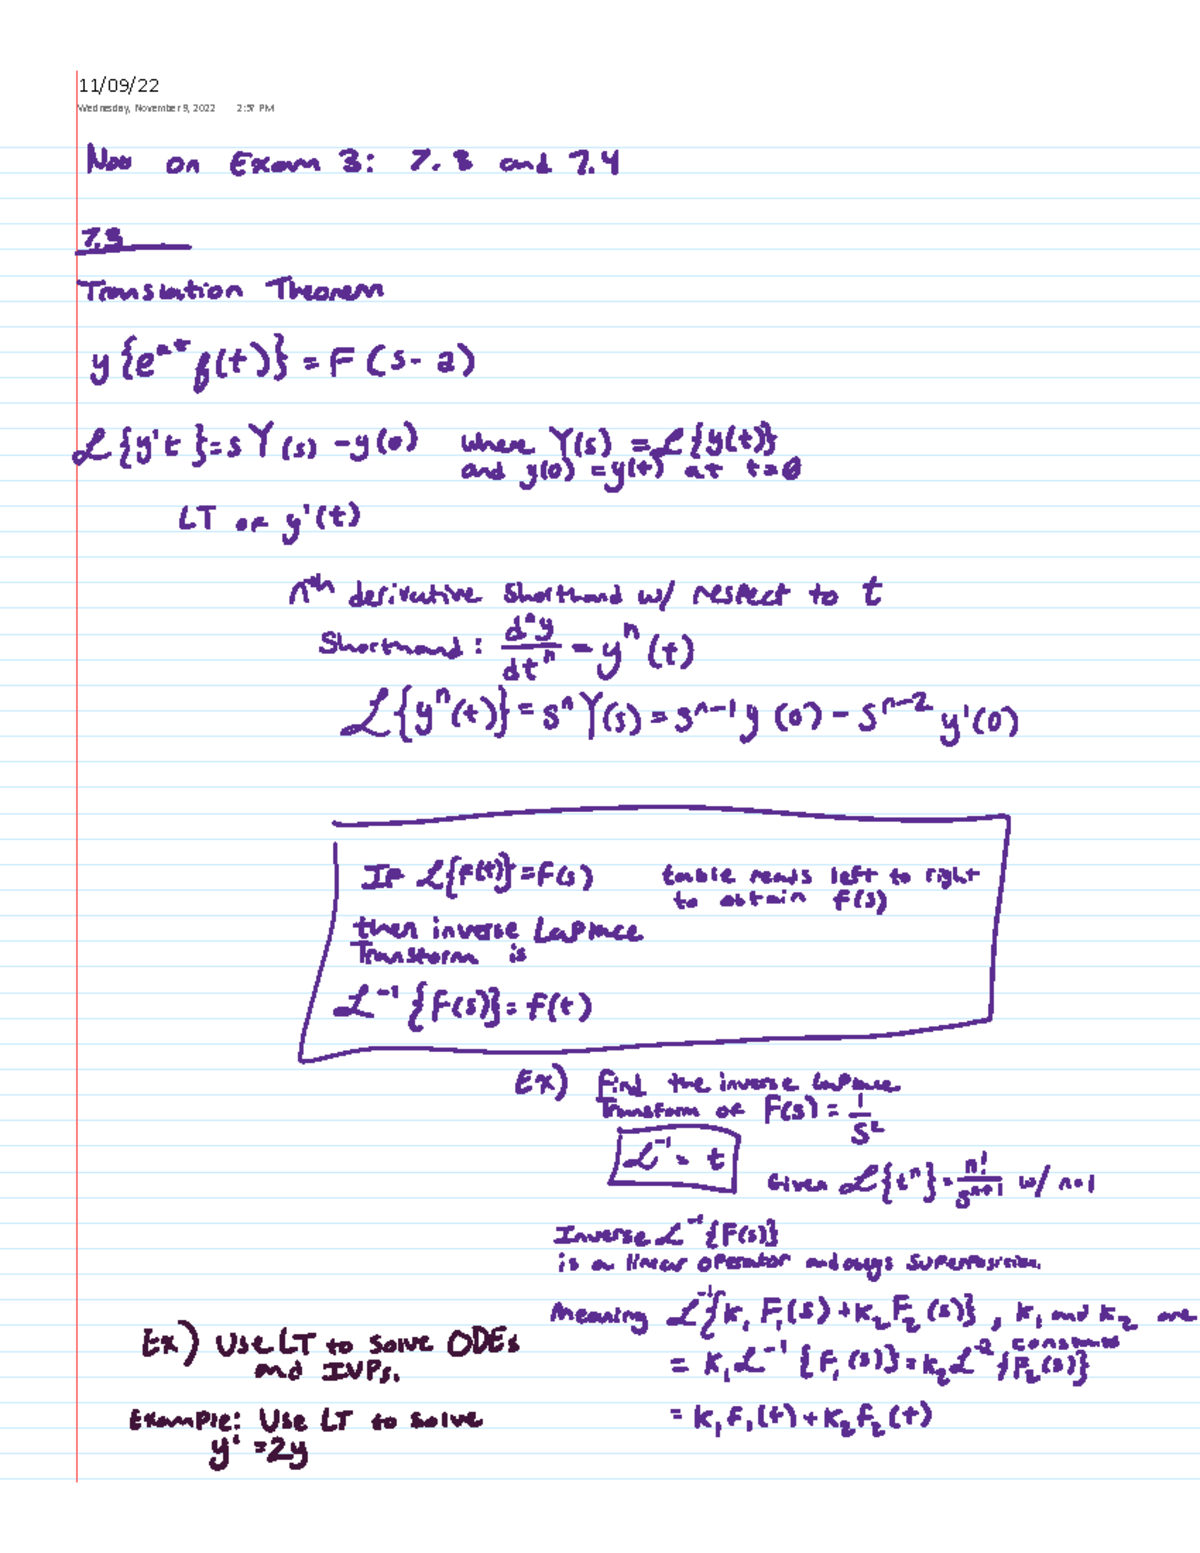 11/09/22
Wednesday, November 9, 2022 2:57 PM
Now on Exam 3: 7.3 and 7.4
7.3
Translation Theorem
y{e^{at} f(t)} = F(s-a)
ℒ{y't} = sY(s) - y(0) where Y(s) = ℒ{y(t)}
and y(0) = y(t) at t=0
LT of y'(t)
n^{th} derivative shorthand w/ respect to t
Shorthand: d^n y/dt^n = y^n(t)
ℒ{y^n(t)} = s^n Y(s) = s^{n-1} y(0) - s^{n-2} y'(0)
If ℒ{f(t)} = F(s) table reads left to right
to obtain f(s)
then inverse Laplace
Transform is
ℒ^{-1}{F(s)} = f(t)
Ex) Find the inverse Laplace
Transform of F(s) = 1/s^2
ℒ^{-1} = t
Given ℒ{t^n} = n!/s^{n+1} w/ n=1
Inverse ℒ^{-1}{F(s)}
is a linear operator and obeys superposition.
Meaning ℒ^{-1}{k_1 F_1(s) + k_2 F_2(s)}, k_1 and k_2 are
constants
= k_1 ℒ^{-1}{F_1(s)} = k_2 ℒ^{-2}{F_2(s)}
= k_1 f_1(t) + k_2 f_2(t)
Ex) Use LT to solve ODEs
and IVPs.
Example: Use LT to solve
y' = 2y